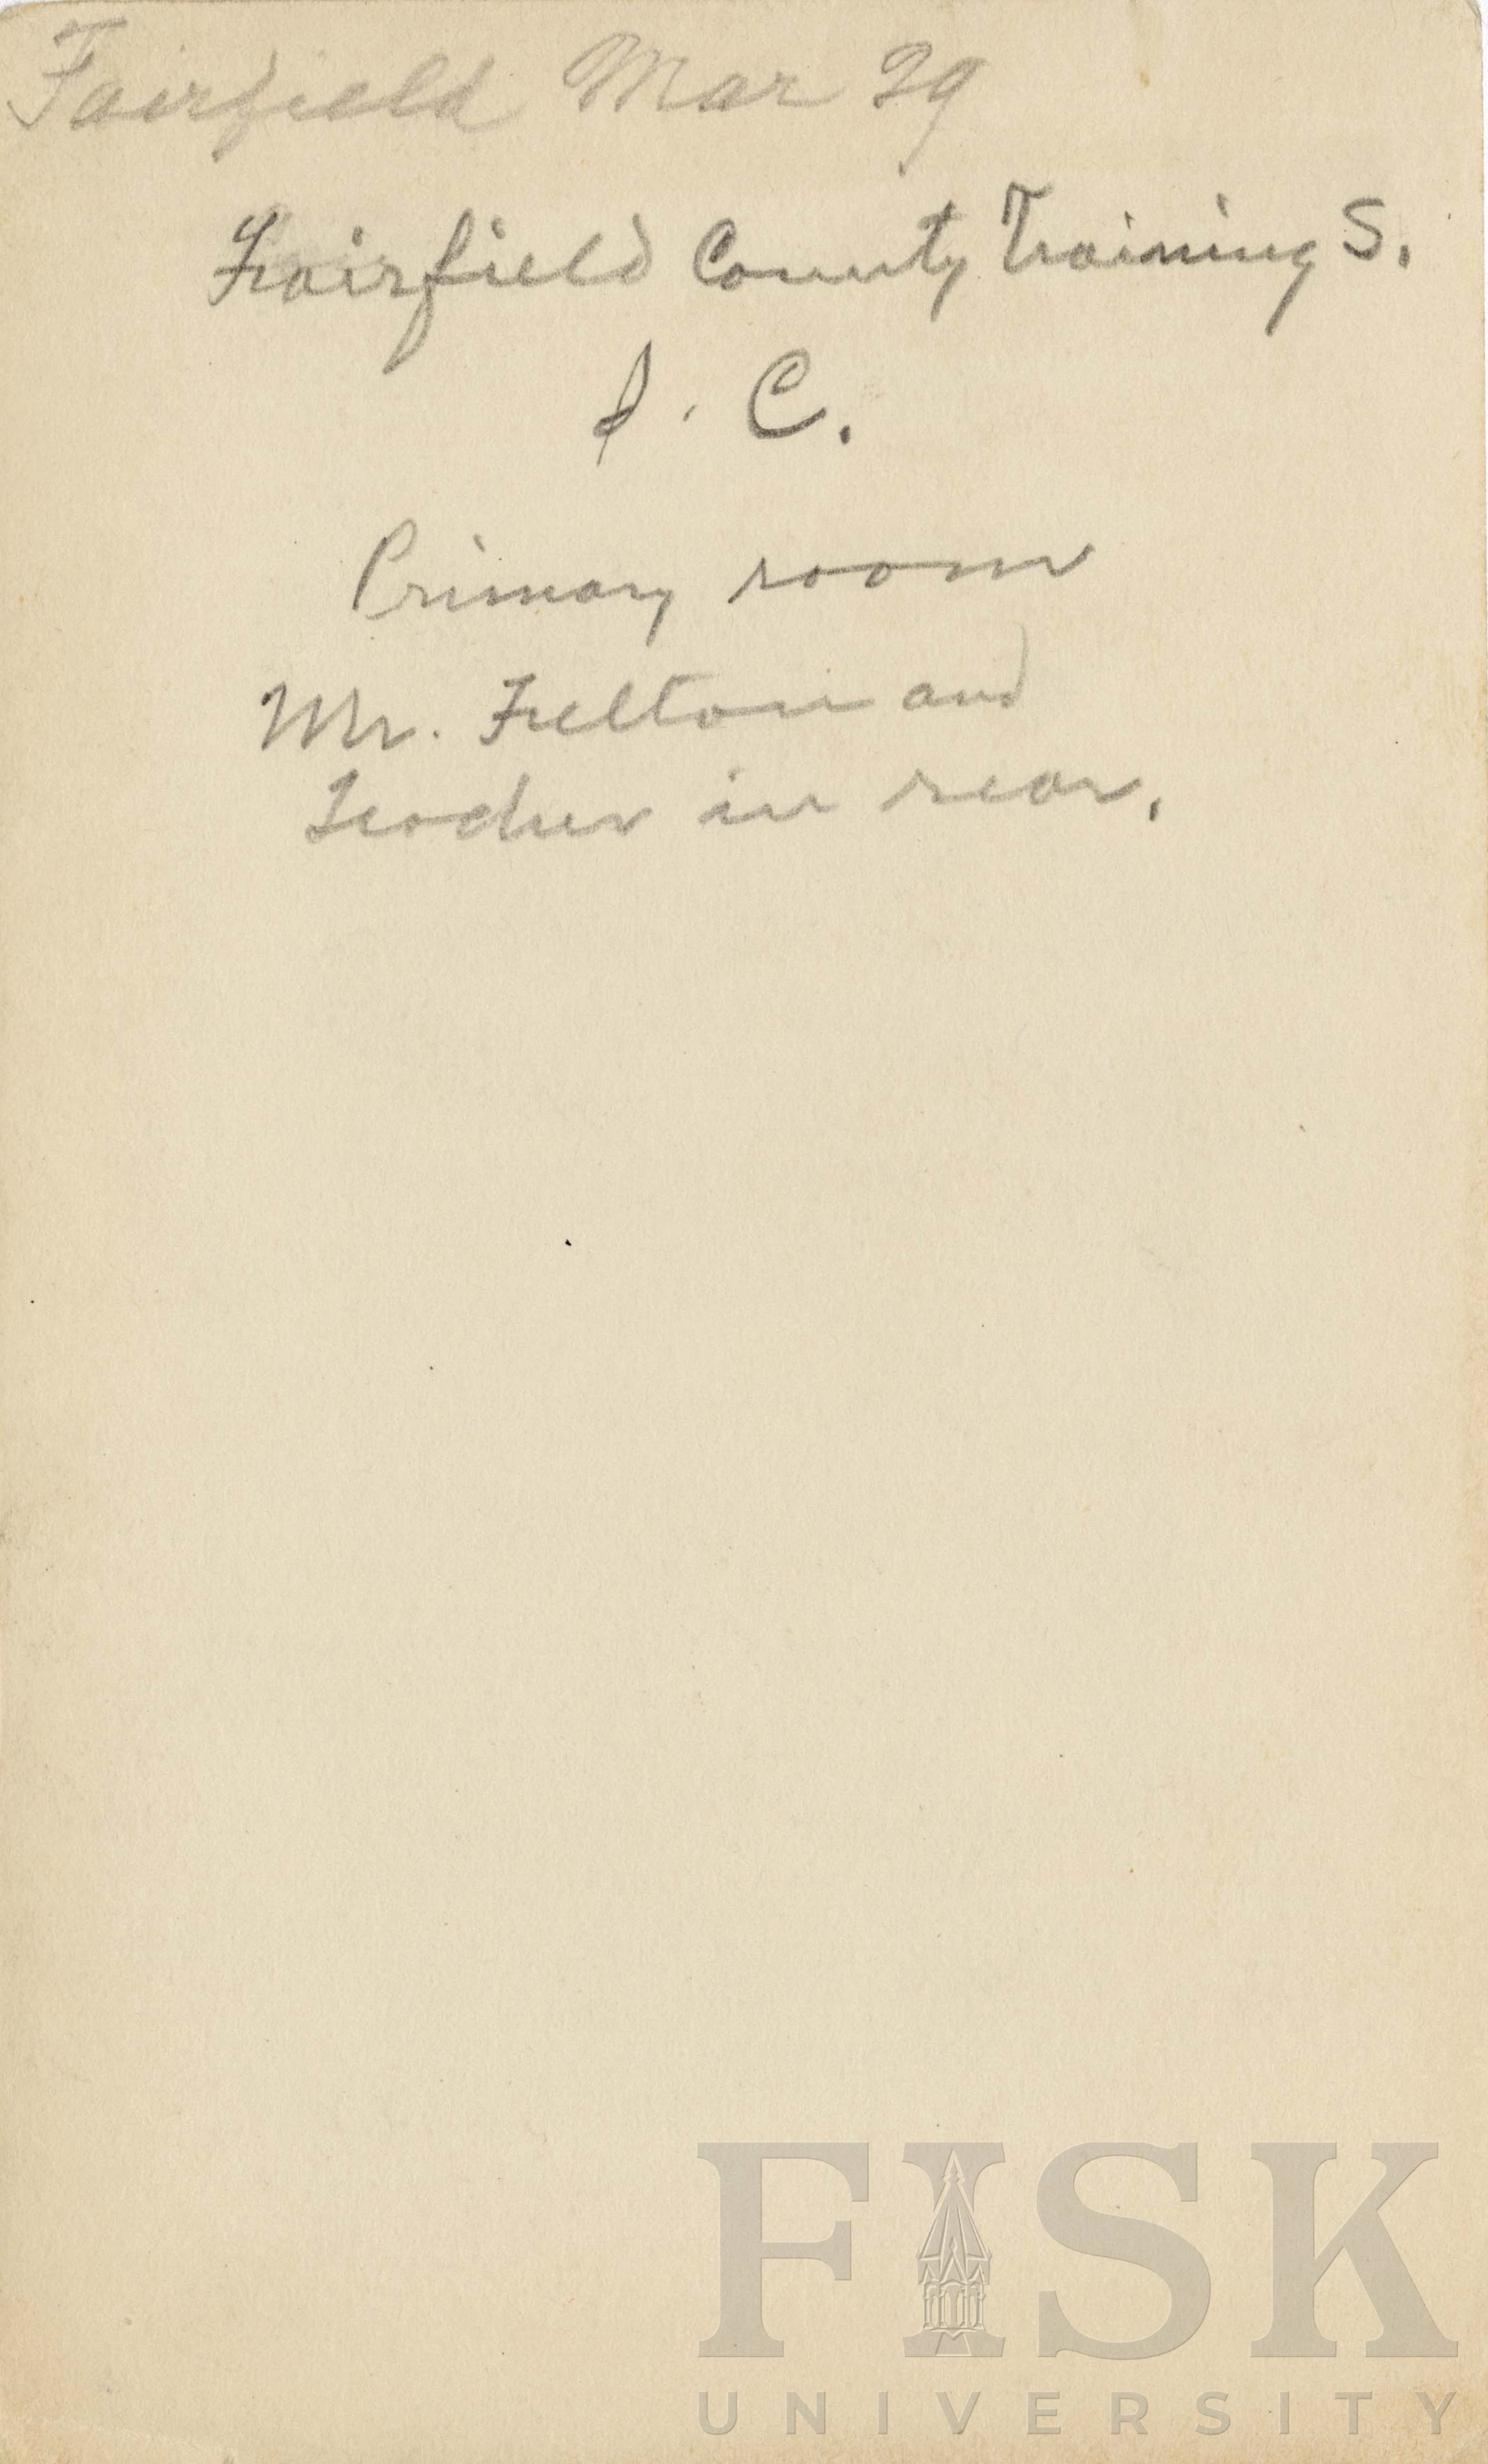 Fairfield Mar 29
Fairfield County Training S.
S. C.
Primary room
Mr. Felton and
Teacher in rear.
FISK
UNIVERSITY